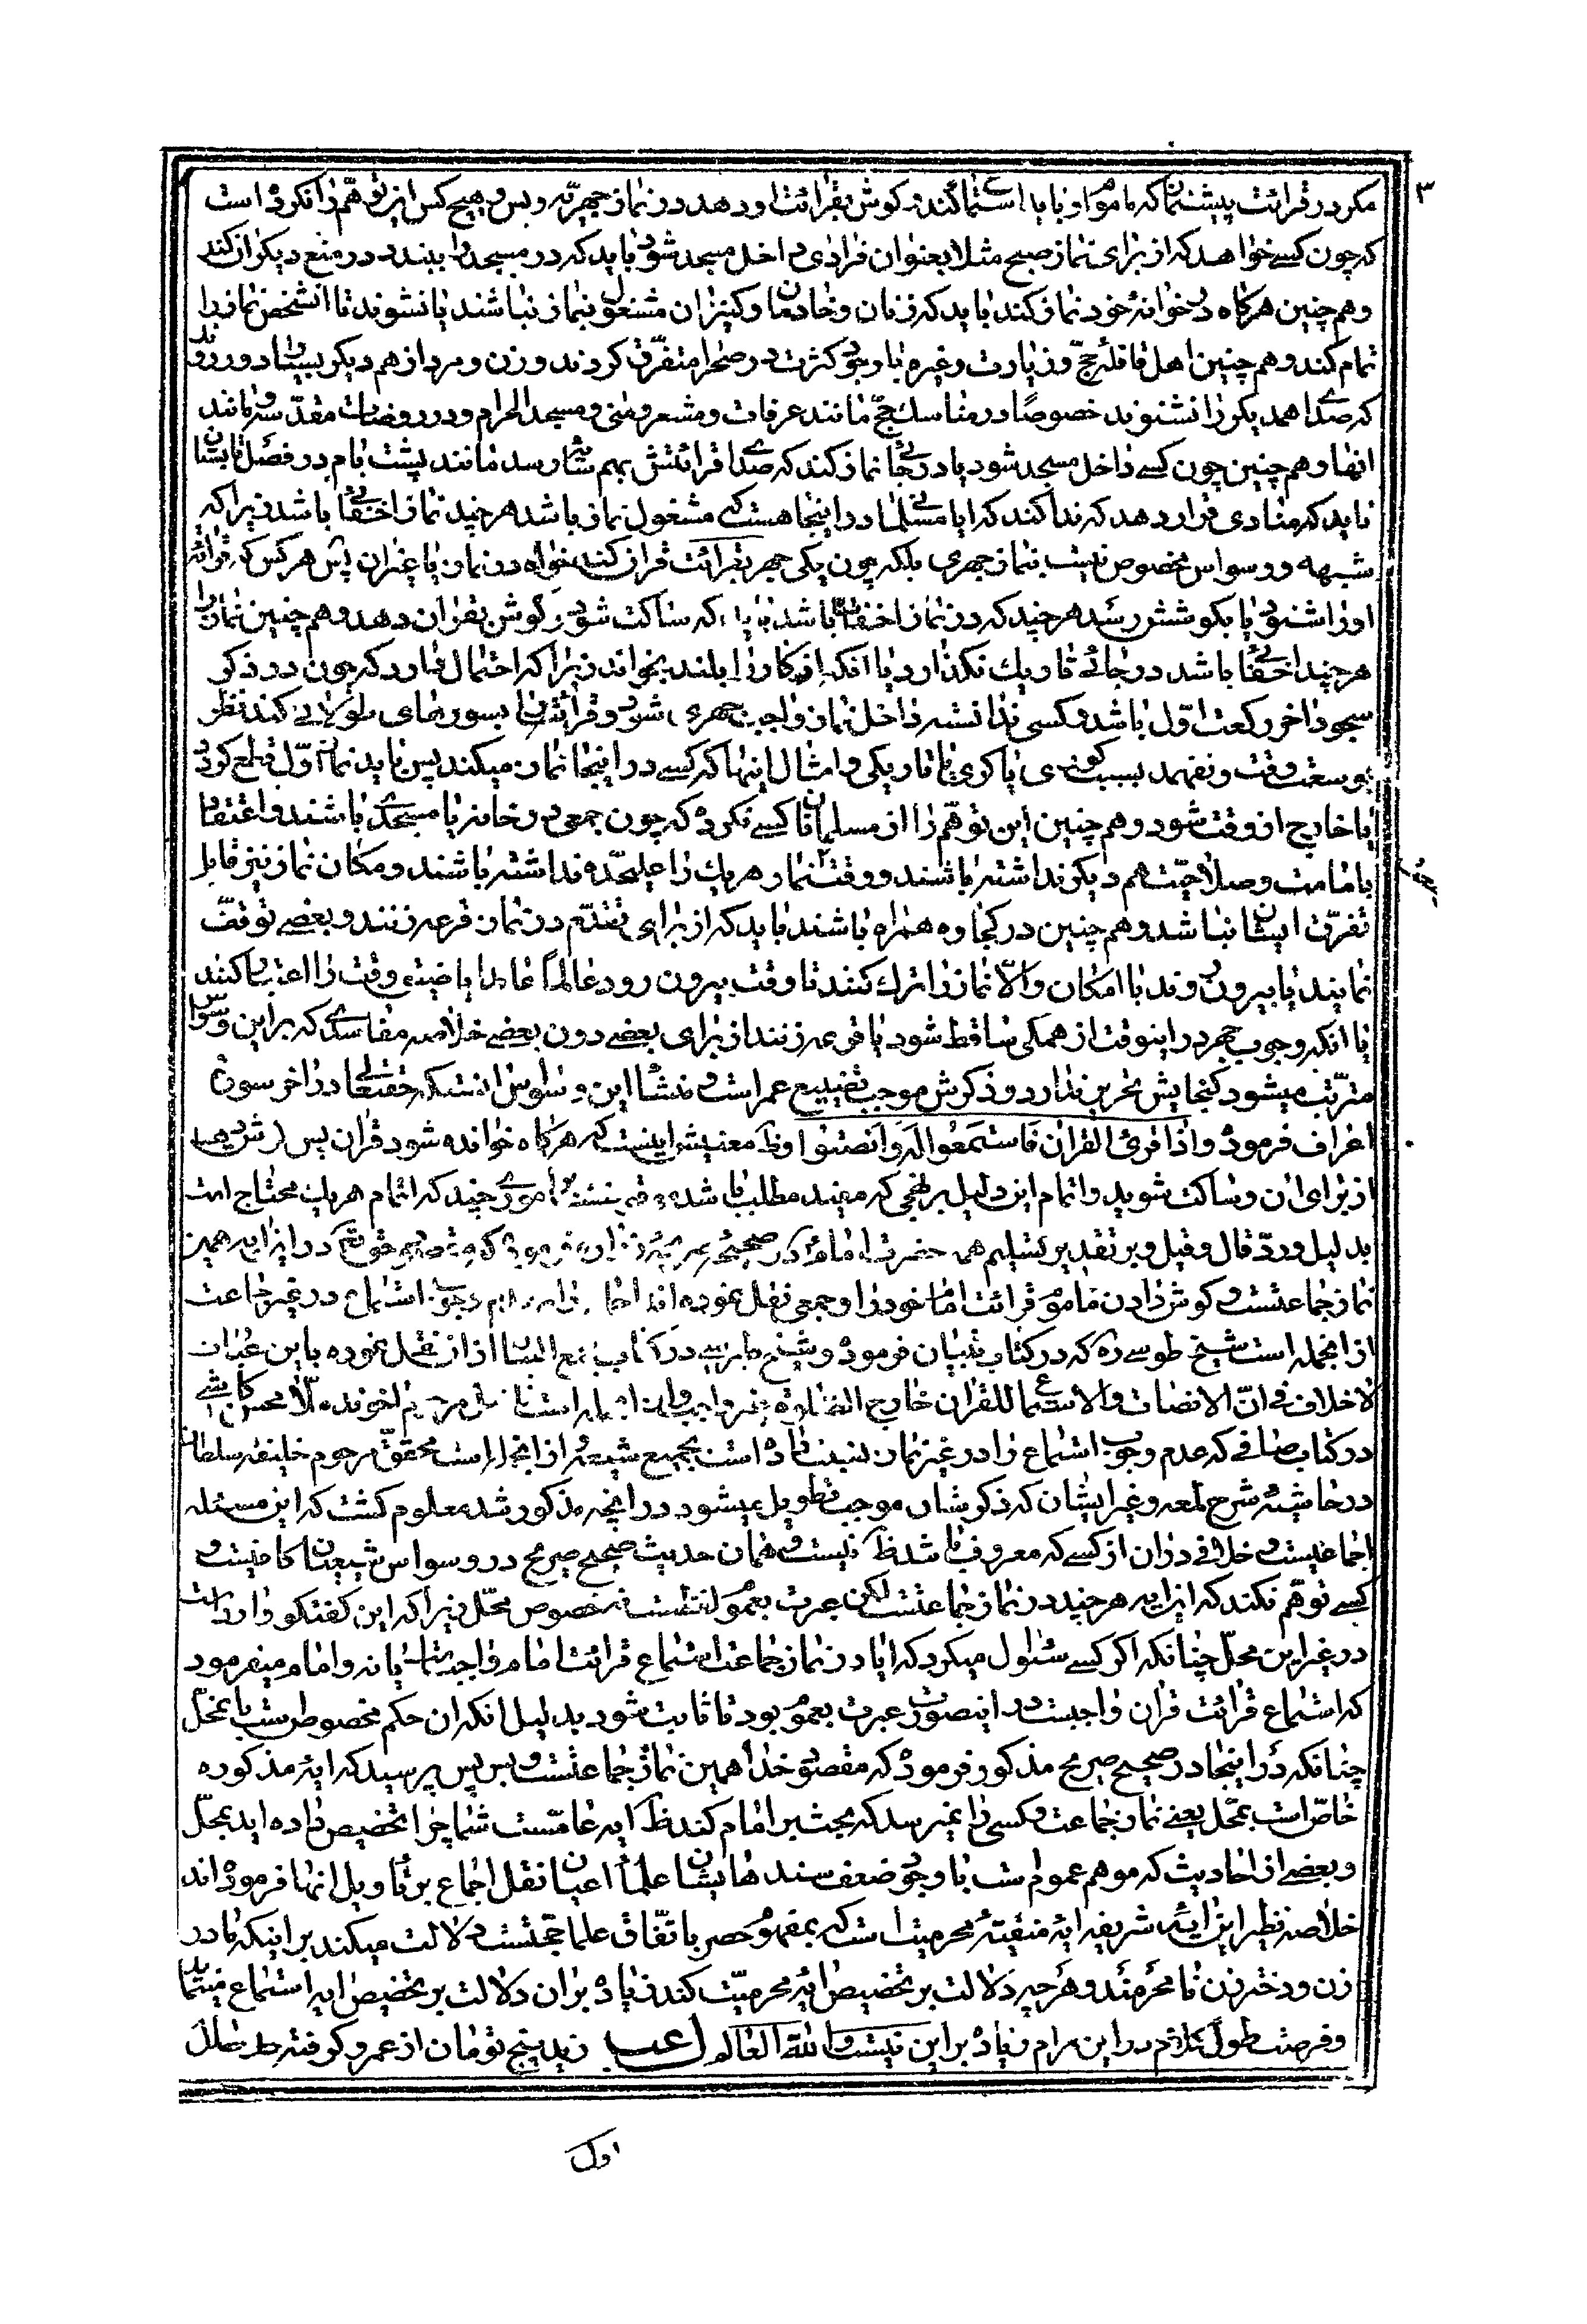 ۳
مکر در قرائت پیشنماز که ماموم او باید استماع کند و کوش بقرائت او دهد در نماز جهریّه و بس و هیچ کس این توهّم را نکرده است
که چون کسی خواهد که از برای نماز صبح مثلا بعنوان فرادی داخل مسجد شود باید که در مسجد را ببندد در منع دیکران کند
و هم چنین هرکاه در خوانهٔ خود نماز کند باید که زنان و خادمان و کنیزان مشغول بنماز نباشند یا نشوند تا انشخص نماز را
تمام کند و هم چنین اهل قافلهٔ حجّ و زیارت و غیره با وجود کثرت در صحرا متفرّق کردند و زن و مرد از هم دیکر بسیار دور روند
که صدای همدیکر را نشنوند خصوصًا در مناسك حجّ مانند عرفات و مشعر و منی و مسجد الحرام و در روضات مقدّسه و مانند
انها و هم چنین چون کسی داخل مسجد شود یا در جائی نماز کند که صدای قرائتش بهم رسد مانند پشت بام در فصل تابستان
باید که منادی قرار دهد که ندا کند که ایا مسلمانی در اینجا هست که مشغول نماز باشد هر چند نماز اخفاتی باشد زیرا که
شبهه و وسواس مخصوص نیست بنماز جهری بلکه چون یکی جهر بقرائت قران کند خواه در نماز یا غیر ان پس هر کس که قرائت
او را شنود یا بکوشش رسد هر چند که در نماز اخفاتی باشد باید که ساکت شود و کوش بقران دهد و هم چنین نماز را
هر چند اخفاتی باشد در جای تاریك نکذارد یا انکه اذکار را بلند بخواند زیرا که احتمال دارد که چون در ذکر
سجود اخر رکعت اوّل باشد و کسی ندانسته داخل نماز واجب جهری شود و قرائت را بسورهای طولانی کند نظر
بوسعت وقت و نفهمد بسبب کوری یا کری یا تاریکی و امثال اینها که کسی در اینجا نماز میکند پس باید نماز اوّل قطع کردد
یا خارج از وقت شود و هم چنین این توهّم را از مسلمانان کسی نکرده که چون جمعی در خانه یا مسجدی باشند و اعتقاد
بامامت و صلاحیّت هم دیکر نداشته باشند و وقت نماز هر یك را علیحدّه نداشته باشند و مکان نماز نیز قابل
تفرّق ایشان نباشد و هم چنین در کجاوه همراه باشند باید که از برای تقدّم در نماز قرعه زنند و بعضی توقّف
نمایند یا بیرون روند با امکان و الّا نماز را ترك کنند تا وقت بیرون رود عالماً عامدا یا ضیق وقت را اعتبار کنند
یا انکه وجوب جهر در اینوقت از همکی ساقط شود یا قرعه زنند از برای بعضی دون بعضی خلاصه مفاسدی که بر این وسواس
مترتّب میشود کنجایش تحریر ندارد و ذکرش موجب تضییع عمر است و منشأ این وسواس انستکه حقتعالی در اخر سورهٔ
اعراف فرموده و اذا قرئ القران فاستمعوا له و انصتوا و معنیش اینست که هرکاه خوانده شود قران پس کوش دهید
از برای ان و ساکت شوید و اتمام این دلیل بر نهجی که مفید مطلب باشد امور چند که اتمام هر یك محتاج است
بدلیل و ردّ قال و قیل و بر تقدیر تسلیم همه حضرت امام در صحیحهٔ زراره فرموده که مقصود حقتعالی در این ایه همین
نماز جماعتست و کوش دادن ماموم قرائت امام خود را و جمعی نقل نموده‌اند عدم وجوب استماع در غیر جماعت
از انجمله است شیخ طوسی ره که در کتاب تبیان فرموده و شیخ طبرسی در کتاب مجمع البیان از او نقل نموده باین عبارت
لا خلاف فی انّ الانصات و الاستماع للقران خارج الصّلوة غیر واجب و از انجمله است مرحوم اخوند ملّا محسن کاشی
در کتاب صافی که عدم وجوب استماع را در غیر نماز نسبت داده است بجمیع شیعه و از انجمله است محقّق مرحوم خلیفه سلطان
در حاشیهٔ شرح لمعه و غیر ایشان که ذکرشان موجب تطویل میشود در انچه مذکور شد معلوم کشت که این مسئله
اجماعیست و خلافی در ان از کسی که معروف باشد نیست و همان حدیث صحیح صریح در ردّ وسواس شیعیان کافیست و
کسی توهّم نکند که این ایه هر چند در نماز جماعتست لکن عبرت بعموم لفظست نه خصوص محلّ زیرا که این کفتکو وارد است
در غیر این محلّ چنانکه اکر کسی سئوال میکرد که ایا در نماز جماعت استماع قرائت امام واجبست یا نه و امام میفرمود
که استماع قرائت قران واجبست در اینصورت عبرت بعموم بود تا ثابت شود بدلیل انکه ان حکم مخصوص است بان محلّ
چنانکه در اینجا در صحیح صریح مذکور فرموده که مقصود خدا همین نماز جماعتست و بس پس پرسید که ایهٔ مذکوره
خاصّ است بمحلّ یعنی نماز جماعت و کسی را نمیرسد که بحث بر امام کند که ایه عامّست شما چرا تخصیص داده‌اید بمحلّ
و بعضی از احادیث که موهم عموم است با وجود ضعف سندهایشان علماء اعیان نقل اجماع بر تاویل انها فرموده‌اند
خلاصه نظیر این ایهٔ شریفه ایهٔ محرمیت است که بمفهوم حصر باتّفاق علما حجّتست دلالت میکند بر اینکه مادر
زن و دختر زن نامحرمند و هر چه دلالت بر تخصیص ایهٔ محرمیّت کند زیاده بر ان دلالت بر تخصیص ایه استماع مینماید
و فرصت طولی کلام در این مرام زیاده بر این نیست و اللّه العالم زید پنج تومان از عمرو کرفته
اول